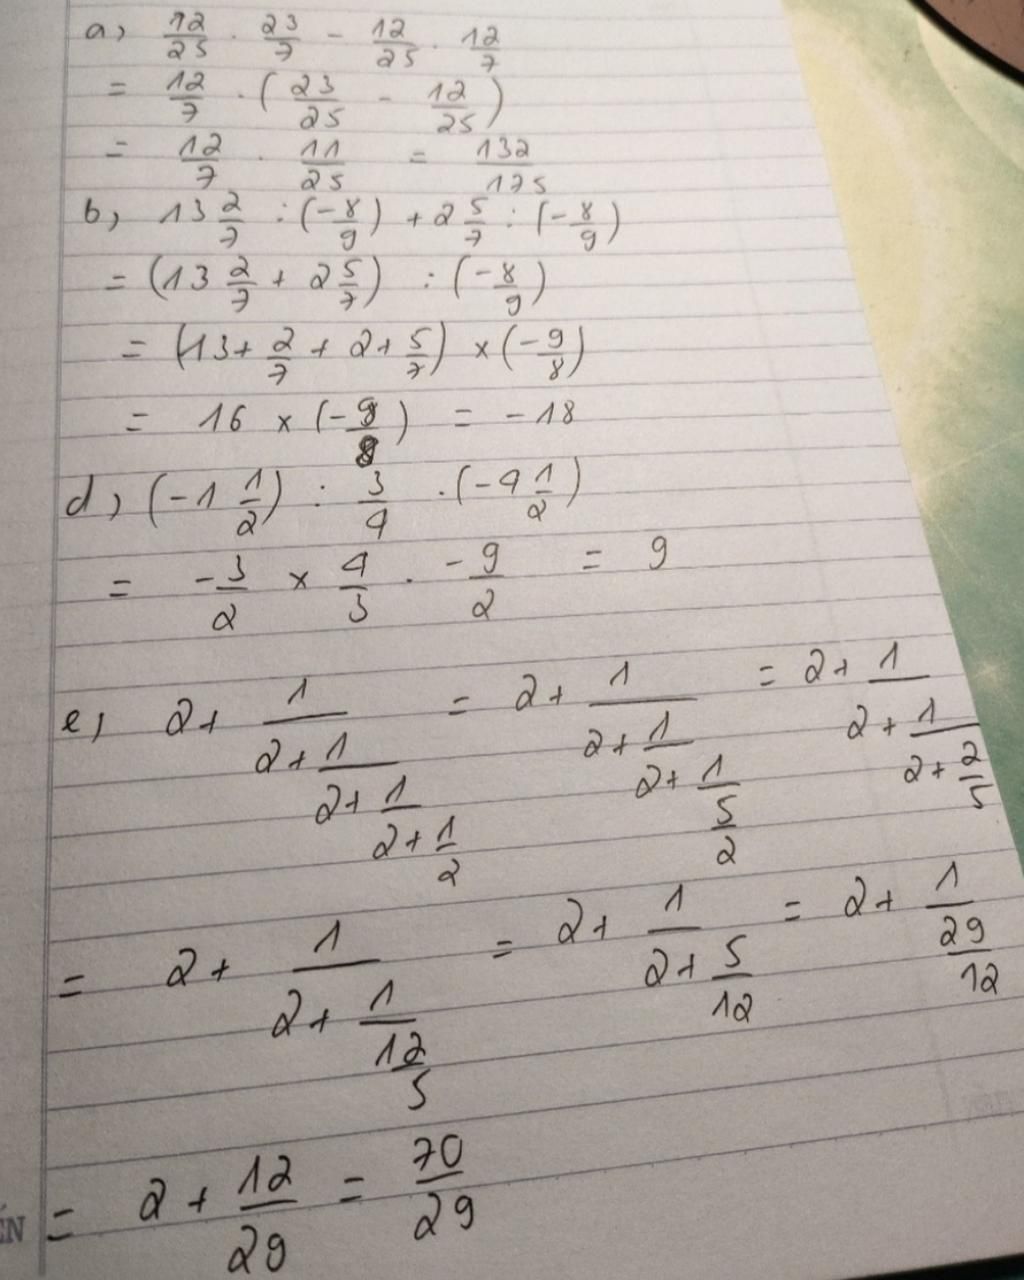 a) 12/25 . 23/7 - 12/25 . 12/7
= 12/7 . (23/25 - 12/25)
= 12/7 . 11/25 = 132/175
b) 13 2/7 : (-8/9) + 2 5/7 : (-8/9)
= (13 2/7 + 2 5/7) : (-8/9)
= (13 + 2/7 + 2 + 5/7) × (-9/8)
= 16 × (-9/8) = -18
d) (-1 1/2) : 3/4 . (-4 1/2)
= -3/2 × 4/3 . -9/2 = 9
e) 2 + 1/(2 + 1/(2 + 1/(2 + 1/2))) = 2 + 1/(2 + 1/(2 + 1/(5/2))) = 2 + 1/(2 + 1/(2 + 2/5))
= 2 + 1/(2 + 1/(12/5)) = 2 + 1/(2 + 5/12) = 2 + 1/(29/12)
= 2 + 12/29 = 70/29